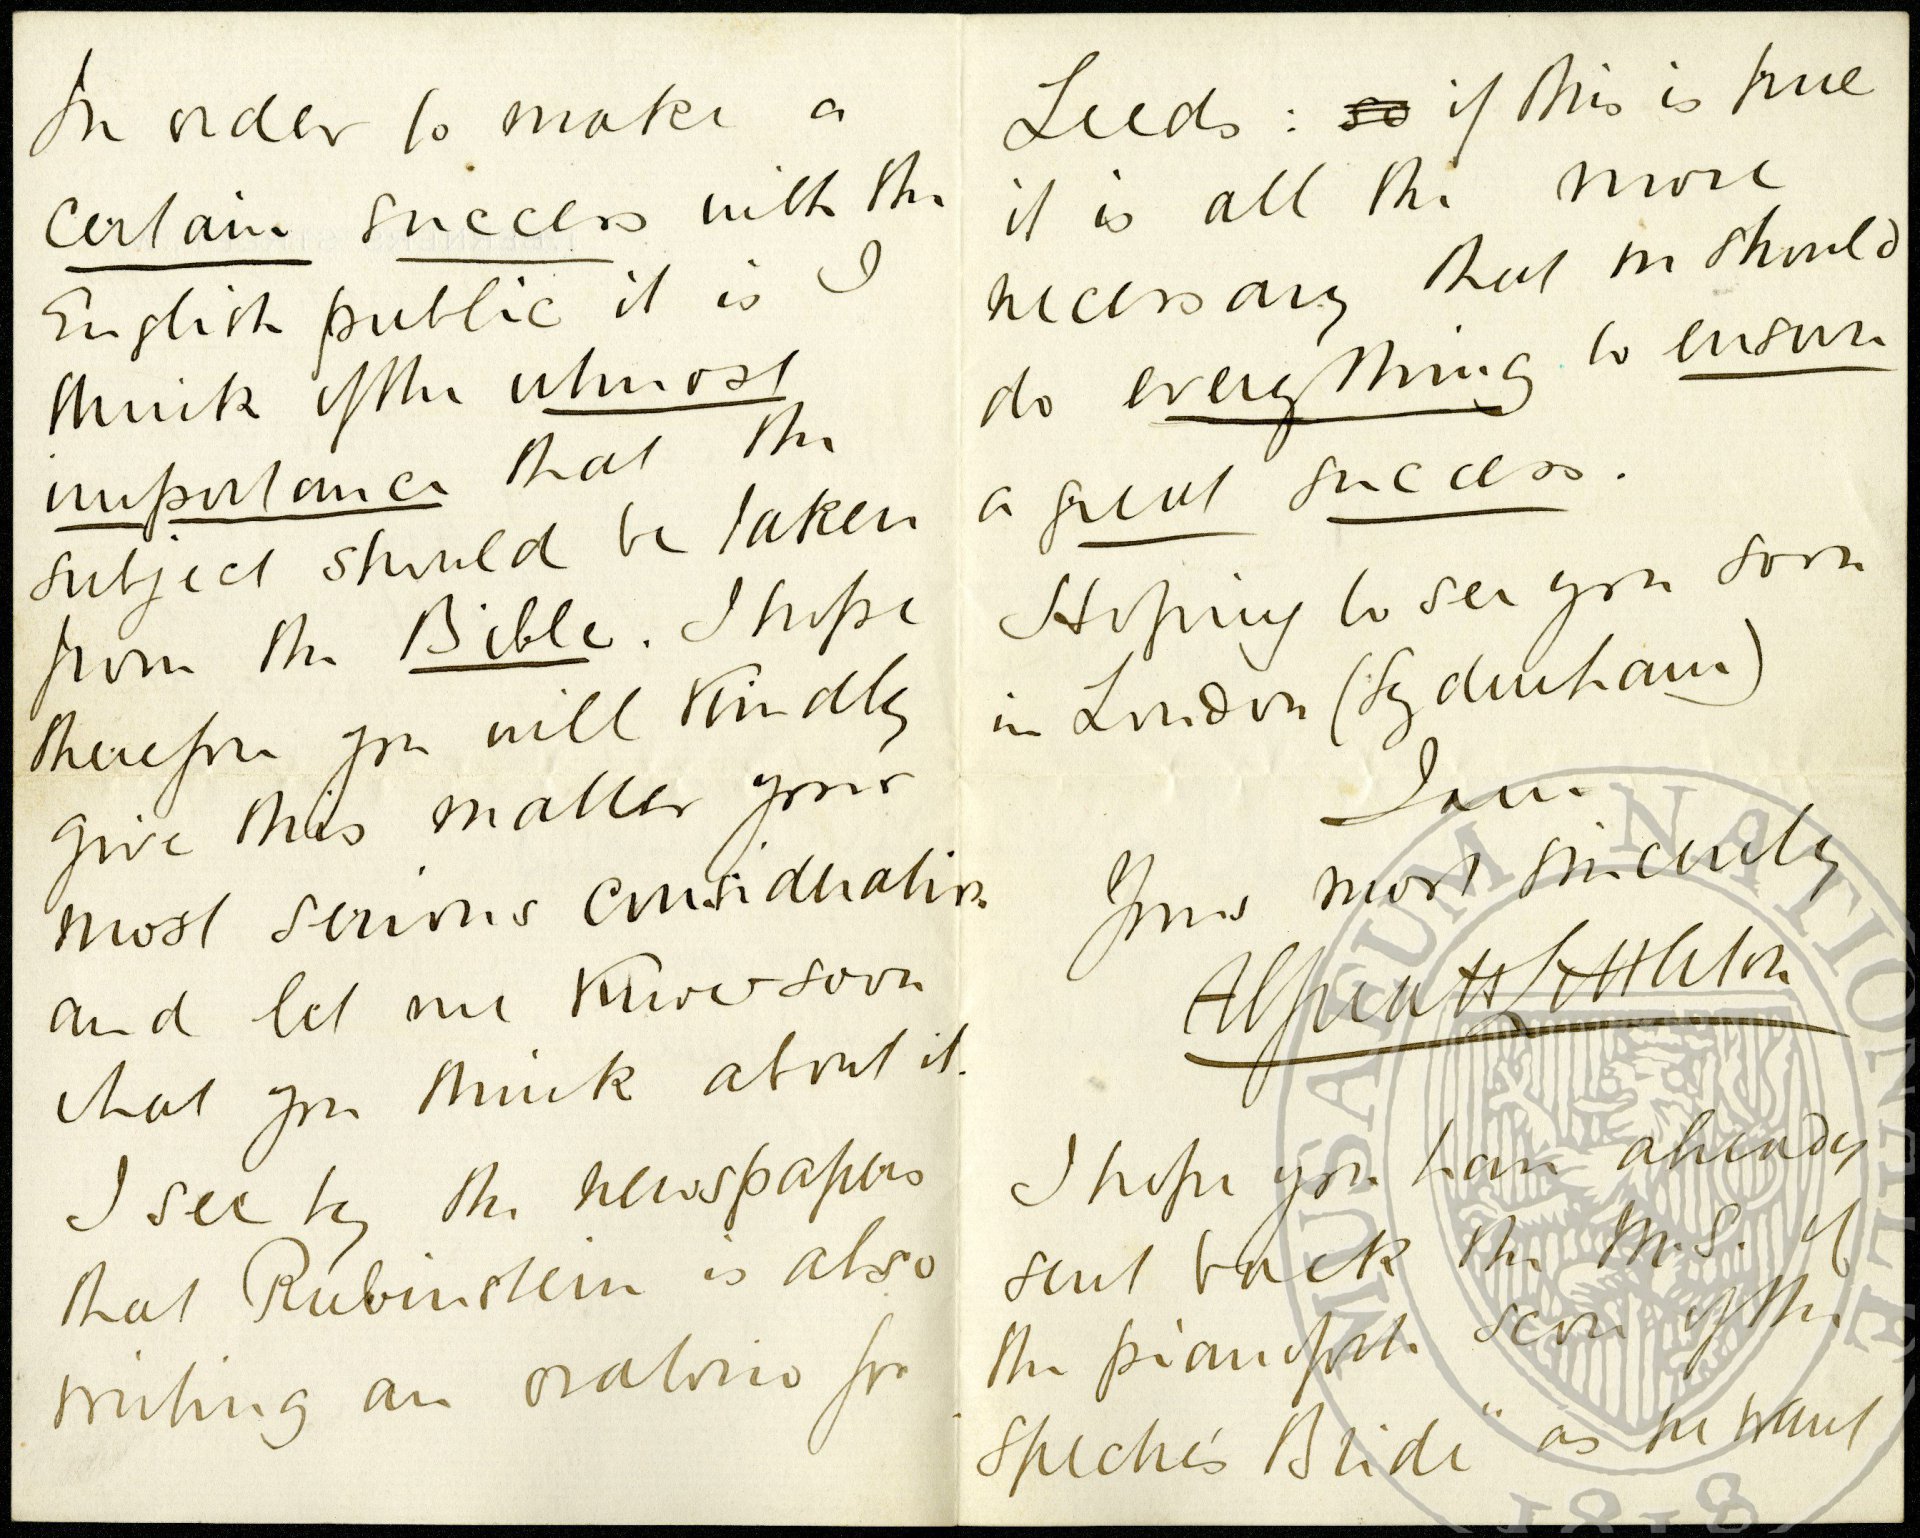 In order to make a
certain success with the
English public it is I
think of the utmost
importance that the
subject should be taken
from the Bible. I hope
therefore you will kindly
give this matter your
most serious consideration
and let me know soon
what you think about it.
I see by the newspapers
that Rubinstein is also
writing an oratorio for
Leeds : so if this is true
it is all the more
necessary that we should
do everything to ensure
a great success.
Hoping to see you soon
in London (Sydenham)
I am
Yours most sincerely
Alfred H Littleton
I hope you have already
sent back the M.S. of
the pianoforte score of the
Spectre's Bride" as we want
MUSAEUM NATIONALE
1818